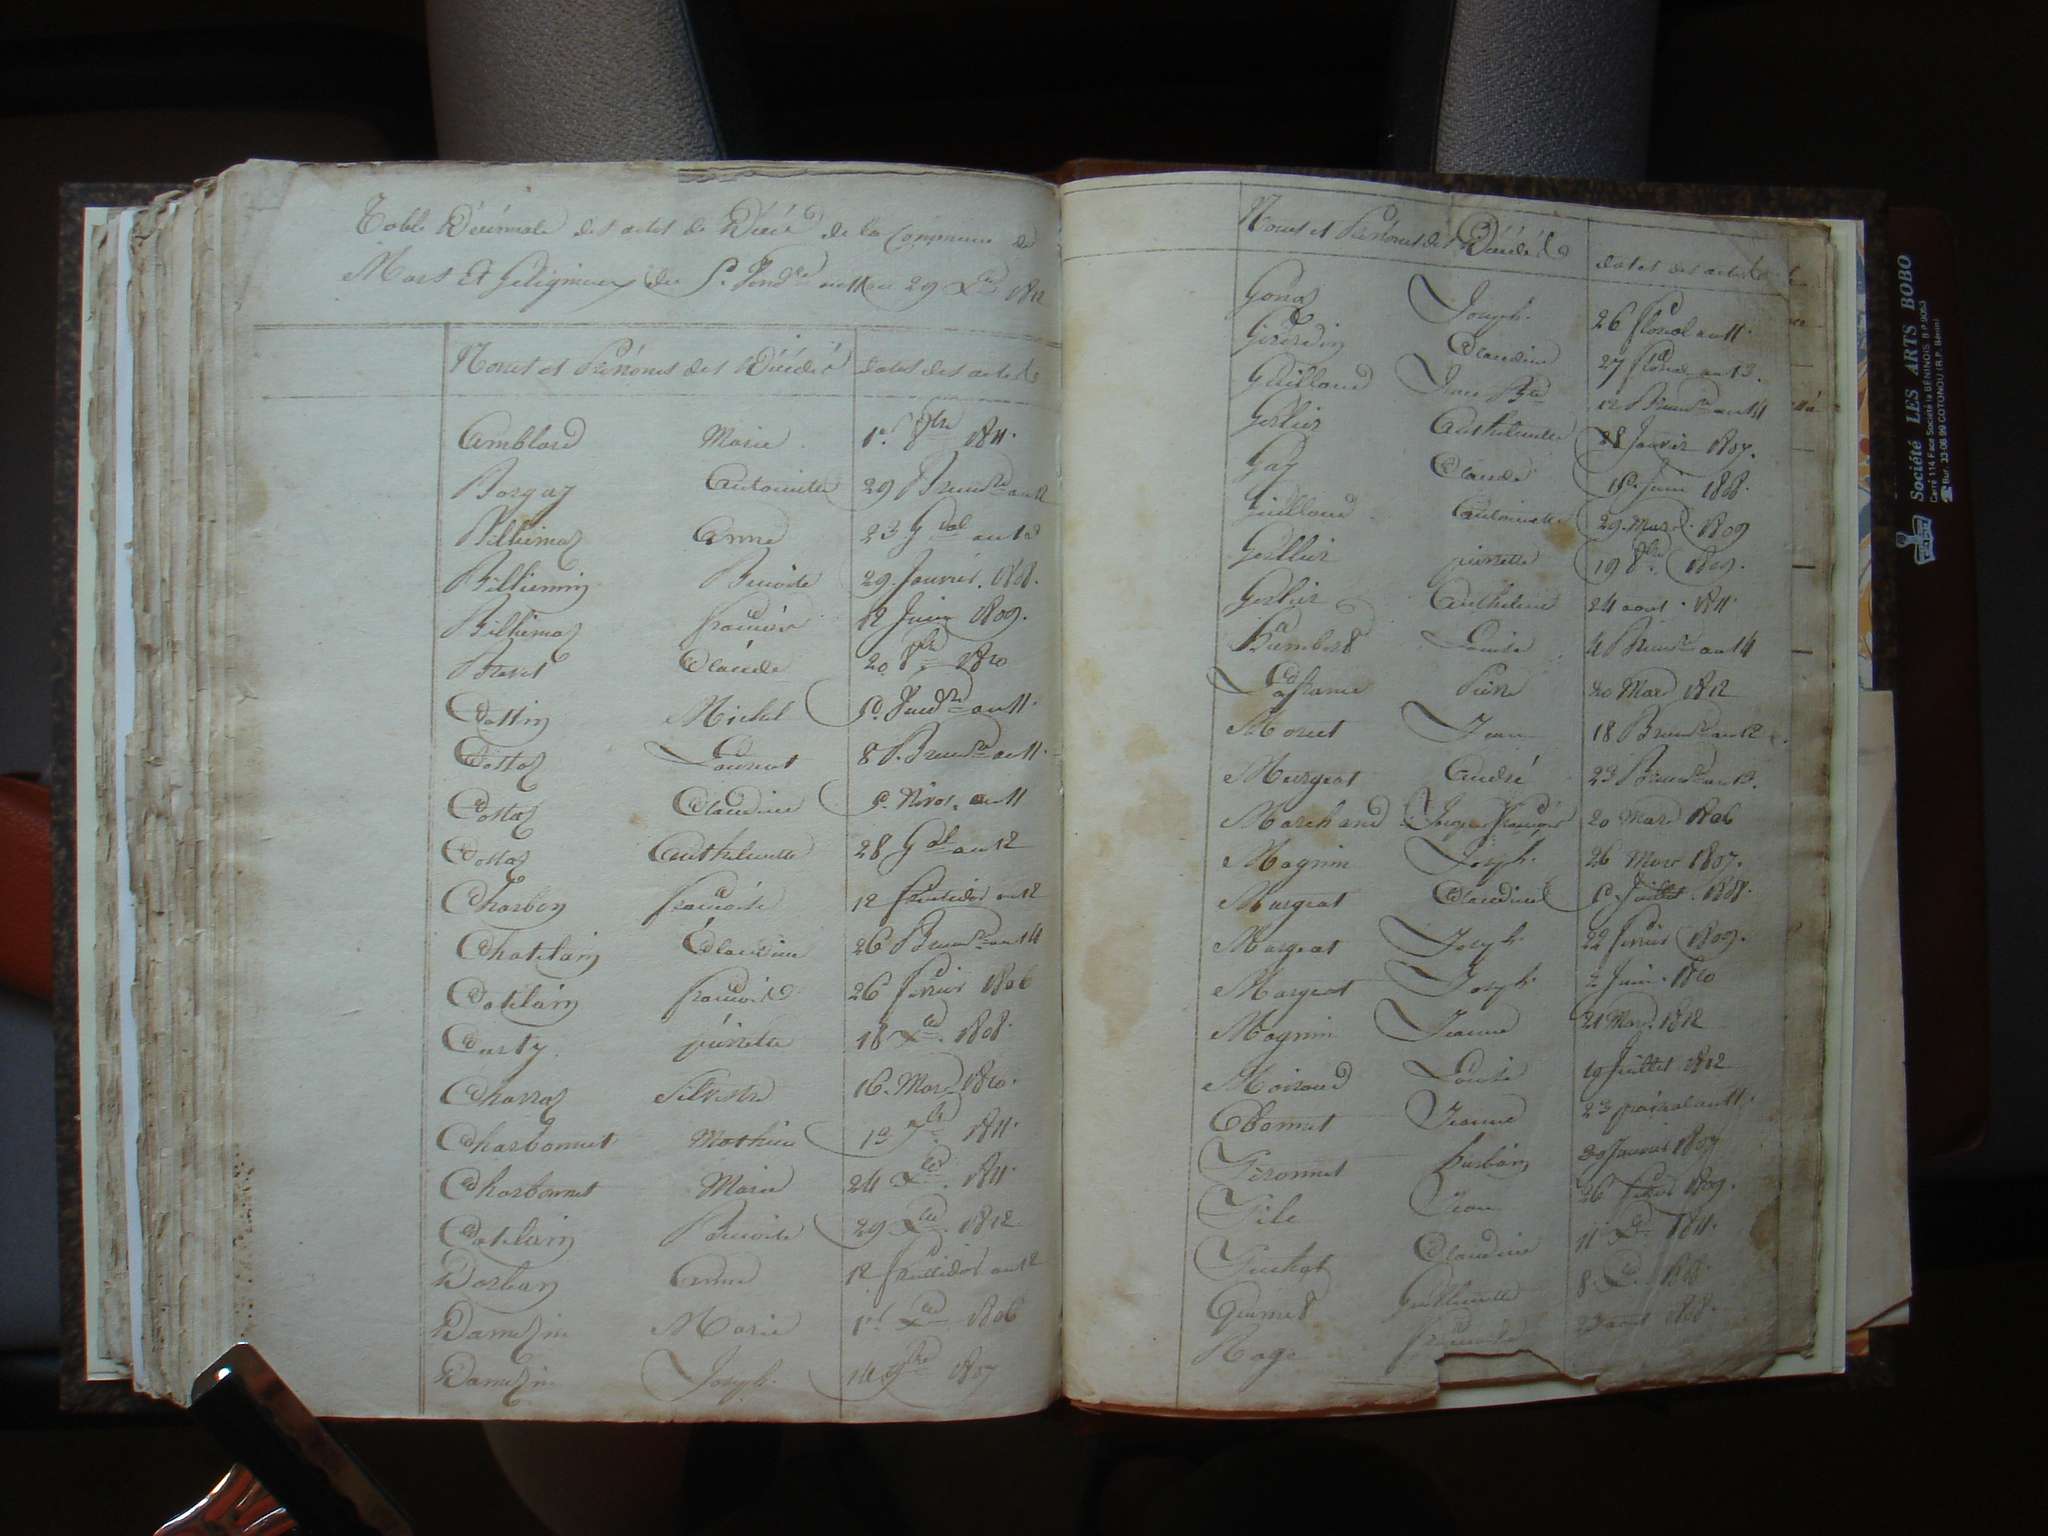 Table Décennale des actes de Décès de la Commune de
Mars Et Geligneux du 1r. Vendre an 11 au 29 Xbre 1812
Noms et Prénoms des Décédés dates des actes
Amblard Marie 1r. 8bre 1811.
Borgay Antoinette 29 Brumre an 12
Billiemaz Anne 23 Gnal an 12
Billiemin Benoite 29. Janvier. 1808.
Billiemaz françoise 12 Juin 1809.
Bravet Claude 20 8bre 1810
Cottin Michel Vendre an 11.
Cottaz Laurent 8 Brumre an 11.
Cottaz Claudine Nivos. an 11
Cottaz Anthelmette 28 Gal an 12
Charbon françoise 12 fructidor an 12
Chatelain Claudine 26 Brumre an 14
Catelain françoise 26 fevrier 1806
Curty pierrette 18 Xbre. 1808.
Charraz Silvestre 16. Mars 1810.
Charbonnet Mathieu 7bre 1811.
Charbonnet Marie 24 Xbre. 1811.
Catelain Benoite 29 Xbre. 1812
Dorban Anne 12 fructidor an 12
Damezin Marie 1r. Xbre 1806
Damezin Joseph. 14 9bre 1807
Noms et Prénoms des Décédés dates des actes
Gonaz Joseph. 26 floreal an 11.
Girerdin Claudine 27 floreal an 13.
Guilland Jean Bte 12 Brumre an 14
Gerlier Anthelmette 28 Janvier 1807.
Gay Claude Juin 1808.
Guilland Antoinette 29. Mars. 1809
Gerllier pierrette 19 8bre. 1809.
Gerlier Anthelme 24 aout. 1811.
Humbert Louise 4 Brumre an 14
Lafrance Pierre 20 Mars 1812
Moret Jean 18 Brumre an 12
Murgeat André 23 Brumre an 13.
Marchand Jacques françois 20 Mars 1806
Magnin Joseph. 26 Mars 1807.
Murgeat Claudine Juillet. 1808.
Murgeat Joseph 22 fevrier 1809.
Murgeat Joseph. 2 Juin. 1810
Magnin Jeanne 21 Mars. 1812
Moiroud Louise 19 Juillet 1812
Jeanne 23 prairial an 11.
Peronnet Janvier 1807
Jean 26 1809.
Claudine 11 Xbre 1811.
8. 1808.
Rage aout 1808.
Société LES ARTS BOBO
Carré 114 Face Société la BENINOIS. B.P 9053
Bur. 33-06 99 COTONOU (R.P. Bénin)